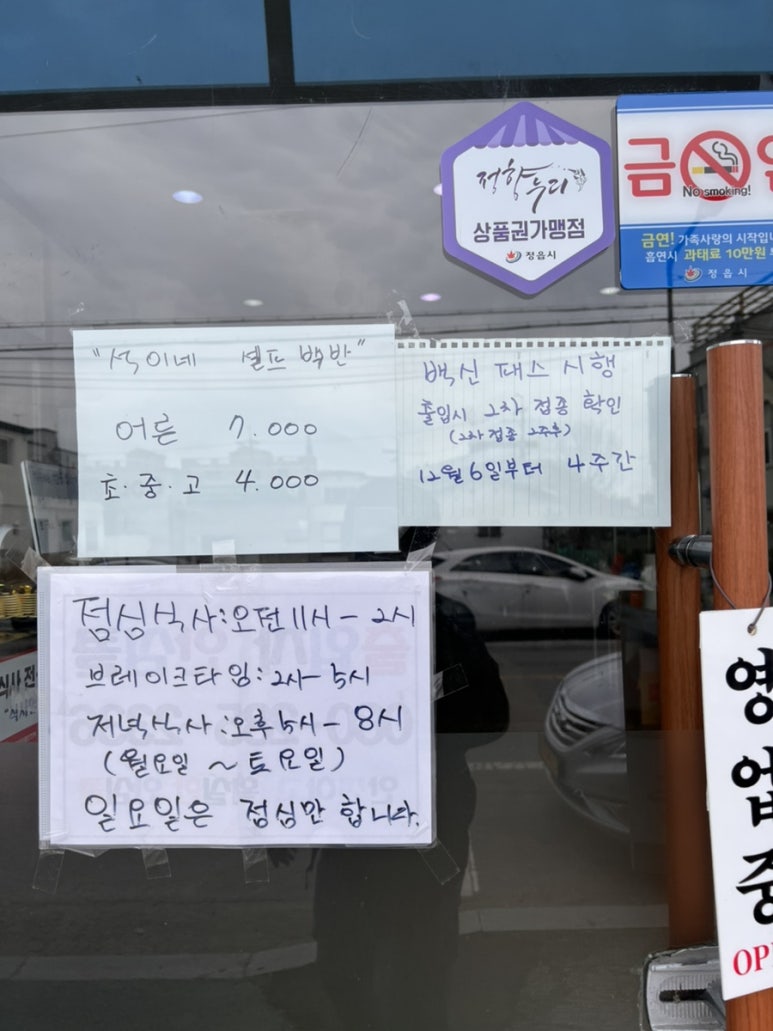 정향누리
상품권가맹점
정읍시
금연
No smoking!
금연! 가족사랑의 시작입니
흡연시 과태료 10만원
정읍시
"석이네 셀프 백반"
어른 7.000
초.중.고 4.000
백신 패스 시행
출입시 2차 접종 확인
(2차접종 2주후)
12월 6일부터 4주간
점심식사:오전11시-2시
브레이크타임:2시-5시
저녁식사:오후5시-8시
(월요일 ~ 토요일)
일요일은 점심만 합니다.
영업중
OPE